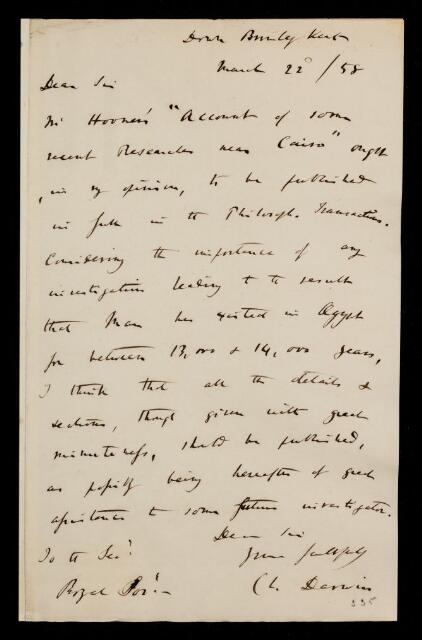 Down Bromley Kent
March 22d /58
Dear Sir
Mr Horner's "Account of some
recent Researches near Cairo" ought
, in my opinion, to be published
in full in the Philosoph. Transactions.
Considering the importance of any
investigations leading to the result
that Man has existed in Egypt
for between 13,000 & 14,000 years,
I think that all the details &
sections, though given with great
minuteness, should be published,
as possibly being hereafter of great
assistance to some future investigator.
Dear Sir
Yours faithfully
Ch. Darwin
To the Secy
Royal Socy
335